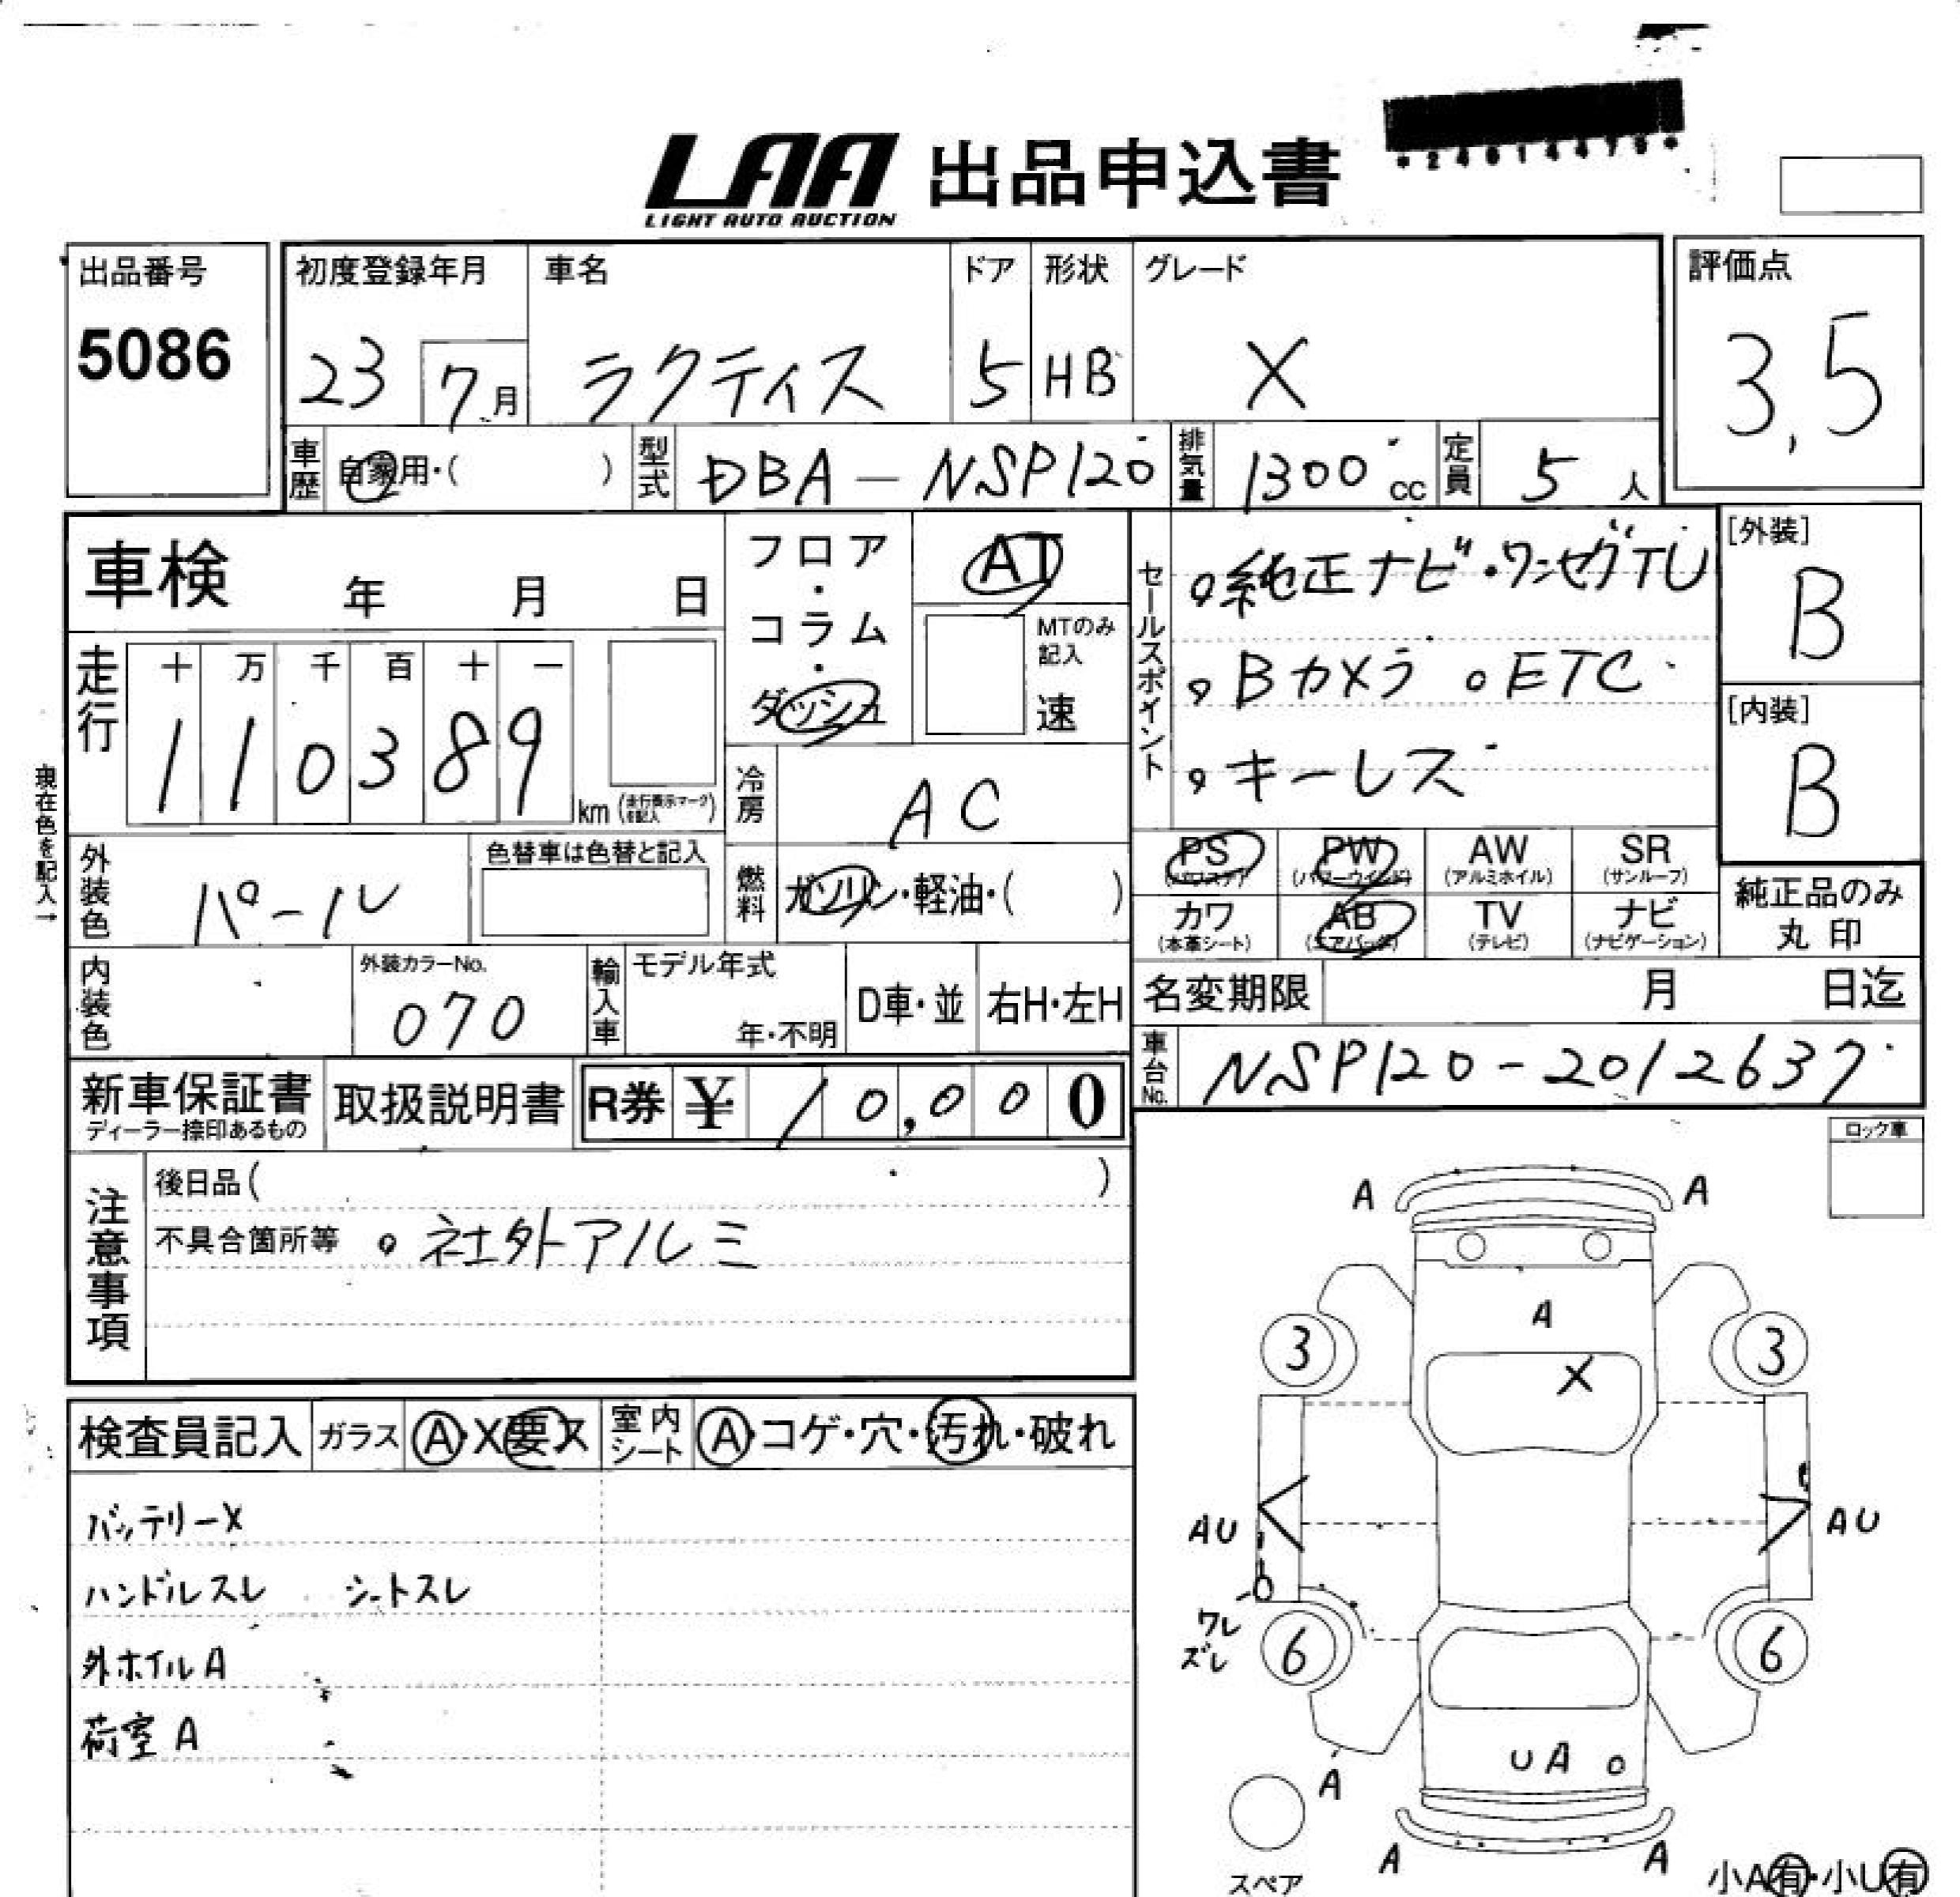 LAA 出品申込書
LIGHT AUTO AUCTION
*24614475*
出品番号 初度登録年月 車名 ドア 形状 グレード 評価点
5086 23 7月 ラクティス 5 HB X 3,5
車歴 自家用・( ) 型式 DBA-NSP120 排気量 1300cc 定員 5人
車検 年 月 日
フロア・コラム・ダッシュ
AT
MTのみ記入
速
セールスポイント
○純正ナビ・ワンセグTU
○Bカメラ ○ETC
○キーレス
[外装]
B
[内装]
B
走行 十 万 千 百 十 一
1 1 0 3 8 9 km (走行表示マークを記入)
現在色を記入→
冷房 AC
外装色 パール 色替車は色替と記入
燃料 ガソリン・軽油・( )
PS PW AW SR
(パワステ) (パワーウインド) (アルミホイル) (サンルーフ)
カワ AB TV ナビ
(本革シート) (エアバッグ) (テレビ) (ナビゲーション)
純正品のみ
丸印
内装色 外装カラーNo.
070
輸入車 モデル年式
年・不明 D車・並 右H・左H
名変期限 月 日迄
車台No. NSP120-2012637
新車保証書 取扱説明書 R券 ¥ 10,000
ディーラー捺印あるもの
注意事項
後日品( )
不具合箇所等 ○社外アルミ
ロック車
検査員記入 ガラス A・X要ス 室内シート A・コゲ・穴・汚れ・破れ
バッテリーX
ハンドルスレ シートスレ
外ホイルA
荷室A
A A
A
3 X 3
AU AU
ワレ
ズレ
6 6
UA
A
A A
スペア
小A有・小U有